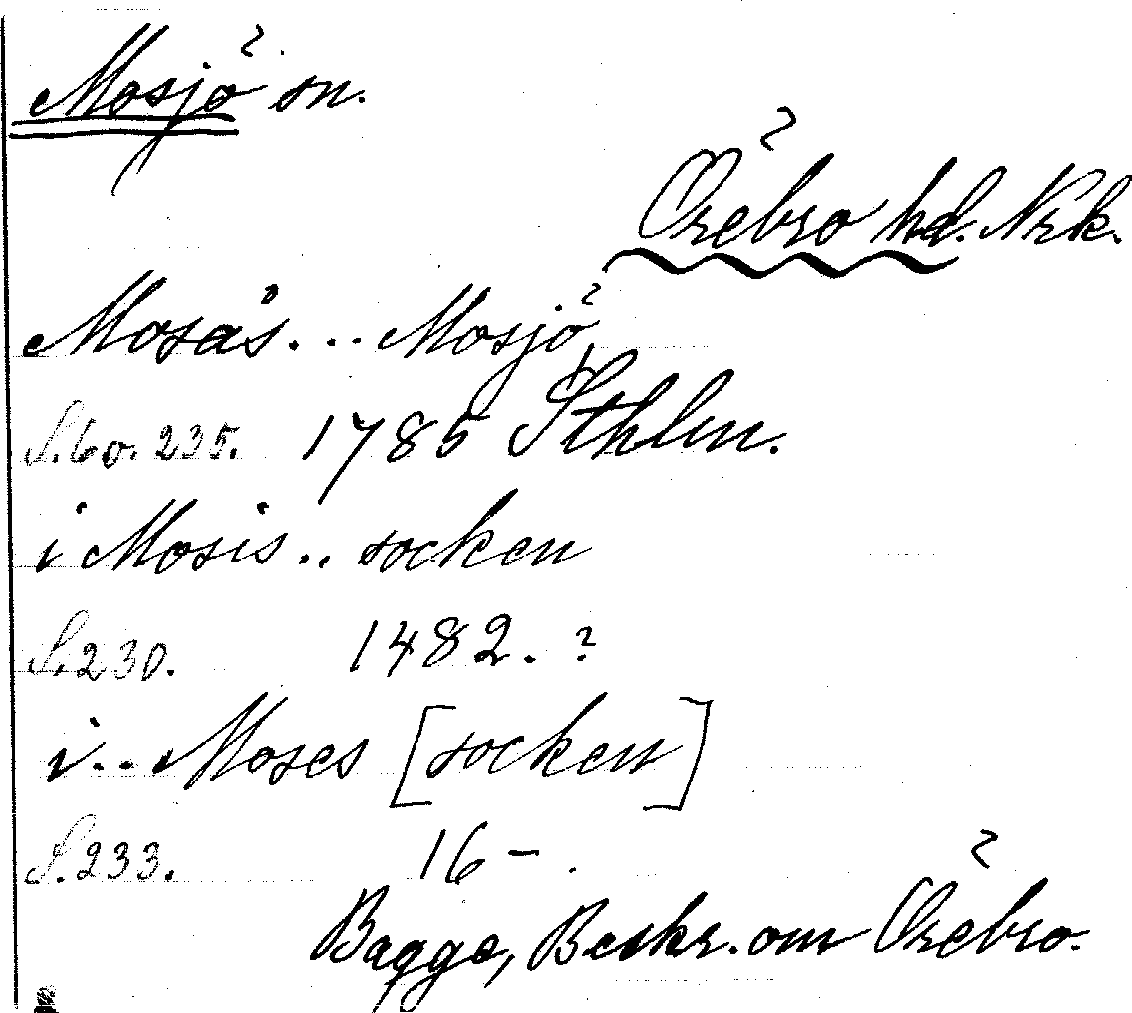 Mosjö sn.
Örebro hd. Nrk.
Mosås... Mosjö
S. 60. 235. 1785 Sthlm.
i Mosis.. socken
S. 230. 1482. ?
i... Moses [socken]
S. 233. 16 - .
Bagge, Beskr. om Örebro.